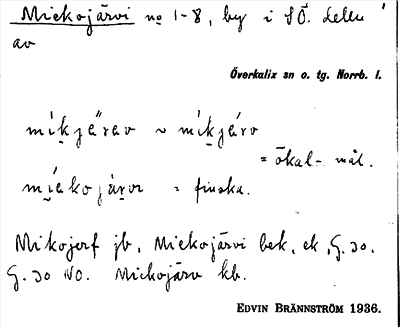 Miekojärvi no 1-8, by i SÖ. delen
av
Överkalix sn o. tg. Norrb. l.
míkjärav ~ míkjáro
= ökal- mål.
miekojärvi = finska.
Mikojerf jb, Miekojärvi bek, ek, G. 30.
G. 30 NO. Miekojärv kb.
EDVIN BRÄNNSTRÖM 1936.